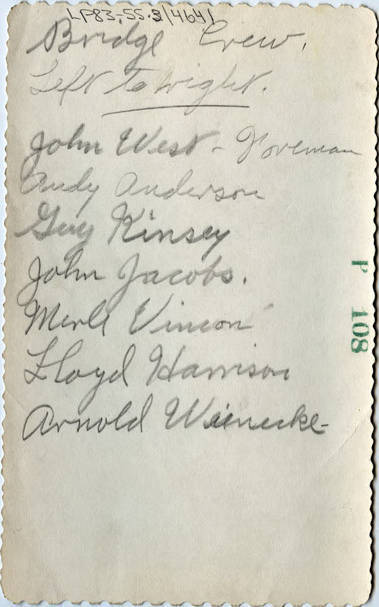 LP83,SS.3/4641
Bridge Crew.
Left to right.
John West - Foreman
Andy Anderson
Guy Kinsey
John Jacobs.
Merle Vinson
Lloyd Harrison
Arnold Wienecke
P 108